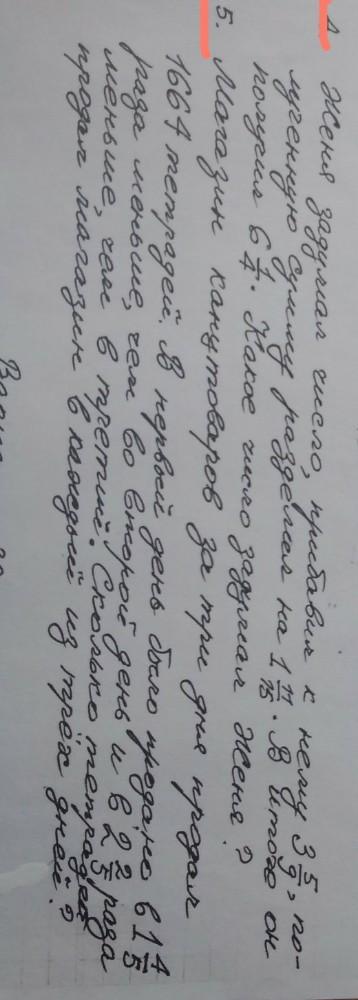 Женя задумал число, прибавил к нему 3 5/9, по-
лученную сумму разделил на 1 11/25. В итоге он
получил 6 1/4. Какое число задумал Женя?
5. Магазин канцтоваров за три дня продал
1664 тетрадей. В первый день было продано в 1 4/5
раза меньше, чем во второй день и в 2 2/5 раза
меньше, чем в третий. Сколько тетрадей
продал магазин в каждый из трёх дней?